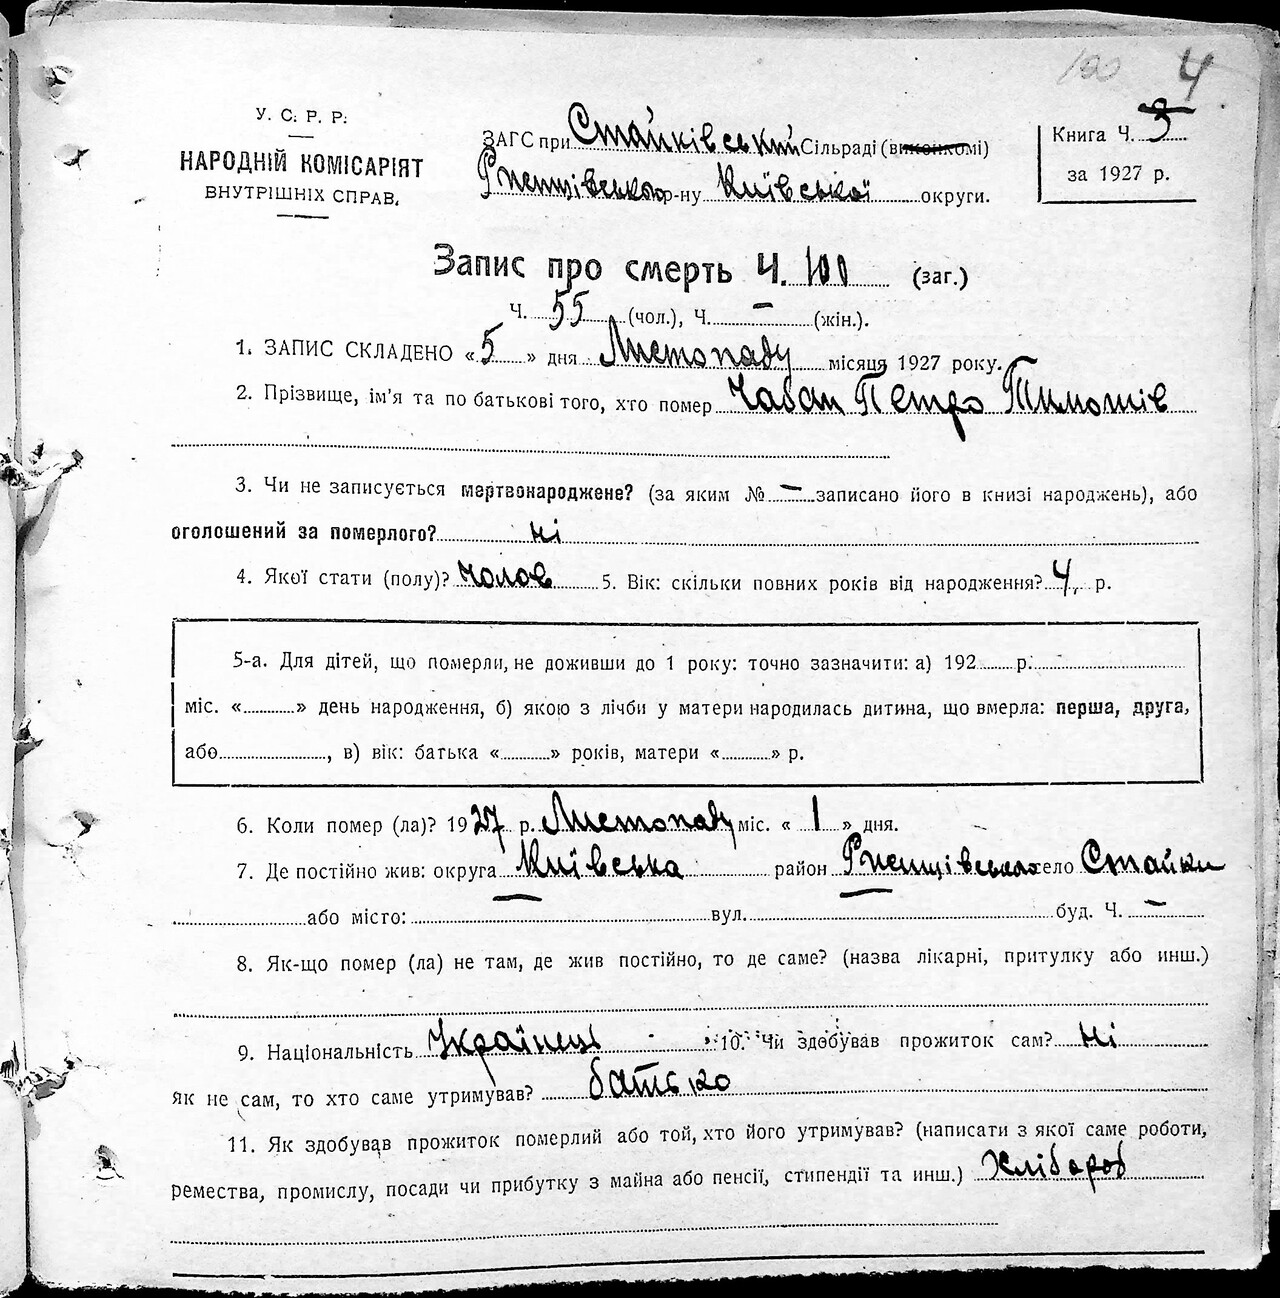 100 4
У. С. Р. Р.
НАРОДНІЙ КОМІСАРІЯТ
ВНУТРІШНІХ СПРАВ.
ЗАГС при Стайківській Сільраді (виконкомі)
Ржищівського р-ну Київської округи.
Книга Ч. 3
за 1927 р.
Запис про смерть Ч. 100 (заг.)
Ч. 55 (чол.), Ч. — (жін.).
1. ЗАПИС СКЛАДЕНО «5» дня Листопаду місяця 1927 року.
2. Прізвище, ім'я та по батькові того, хто помер Чабан Петро Тимошів
3. Чи не записується мертвонароджене? (за яким № — записано його в книзі народжень), або
оголошений за померлого? ні
4. Якої стати (полу)? Чолов 5. Вік: скільки повних років від народження? 4 р.
5-а. Для дітей, що померли, не доживши до 1 року: точно зазначити: а) 192 р.
міс. « » день народження, б) якою з лічби у матери народилась дитина, що вмерла: перша, друга,
або , в) вік: батька « » років, матери « » р.
6. Коли помер (ла)? 1927 р. Листопаду міс. «1» дня.
7. Де постійно жив: округа Київська район Ржищівський село Стайки
або місто: вул. буд. Ч. —
8. Як-що помер (ла) не там, де жив постійно, то де саме? (назва лікарні, притулку або инш.)
9. Національність Українець 10. Чи здобував прожиток сам? ні
як не сам, то хто саме утримував? батько
11. Як здобував прожиток померлий або той, хто його утримував? (написати з якої саме роботи,
ремества, промислу, посади чи прибутку з майна або пенсії, стипендії та инш.) Хлібороб